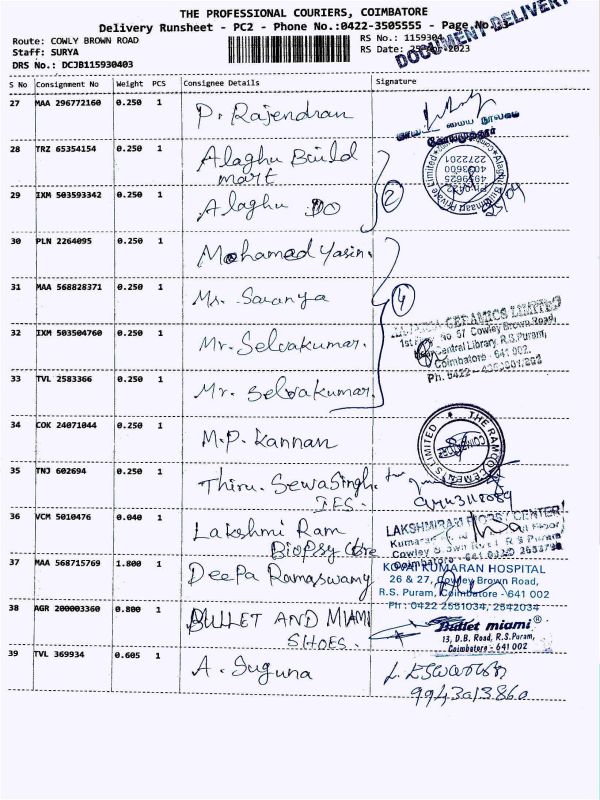 THE PROFESSIONAL COURIERS, COIMBATORE
Delivery Runsheet - PC2 - Phone No.:0422-3505555 - Page No.
DOCUMENT DELIVERY
Route: COWLY BROWN ROAD
RS No.: 1159304
Staff: SURYA
RS Date: 25-Apr-2023
DRS No.: DCJB115930403
S No Consignment No Weight PCS Consignee Details Signature
27 MAA 296772160 0.250 1 P. Rajendran
28 TRZ 65354154 0.250 1 Alaghu Build
mart
29 IXM 503593342 0.250 1 Alaghu DO
2
Private Limited
2272201
4033600
25/04
30 PLN 2264095 0.250 1 Mohamad Yasin.
31 MAA 568828371 0.250 1 Mr. Saranya
4
32 IXM 503504760 0.250 1 Mr. Selvakumar.
CERAMICS LIMITED
No 57 Cowley Brown Road,
Central Library, R.S.Puram,
Coimbatore - 641 002.
Ph. 0422 -
33 TVL 2583366 0.250 1 Mr. Selvakumar.
34 COK 24071044 0.250 1 M.P. Kannan
THE RAMCO CEMENTS LIMITED
35 TNJ 602694 0.250 1 Thiru. Sewasingh.
IES.
36 VCM 5010476 0.040 1 Lakshmi Ram
Biopsy
LAKSHMIRAM BIOPSY CENTER
Cowley Brown Road, R S Puram
Coimbatore
37 MAA 568715769 1.800 1 Deepa Ramaswamy
KOVAI KUMARAN HOSPITAL
26 & 27, Cowley Brown Road,
R.S. Puram, Coimbatore - 641 002
Ph : 0422 2551034, 2542034
38 AGR 200003360 0.800 1 BULLET AND MIAMI
SHOES.
Bullet miami®
13, D.B. Road, R.S.Puram,
Coimbatore - 641 002
39 TVL 369934 0.605 1 A. Suguna